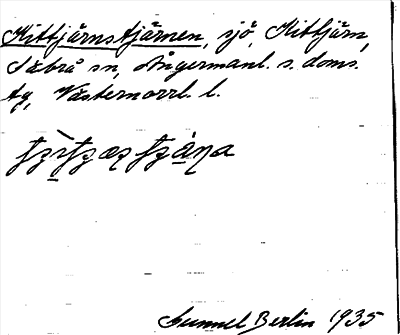 Kittjärnstjärnen, sjö, Kittjärn,
Säbrå sn, Ångermanl. s. doms.
tg, Västernorrl. l.
Gunnel Berlin 1935